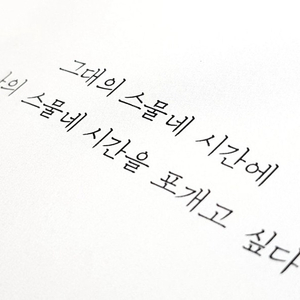 그대의 스물네 시간에
의 스물네 시간을 포개고 싶다